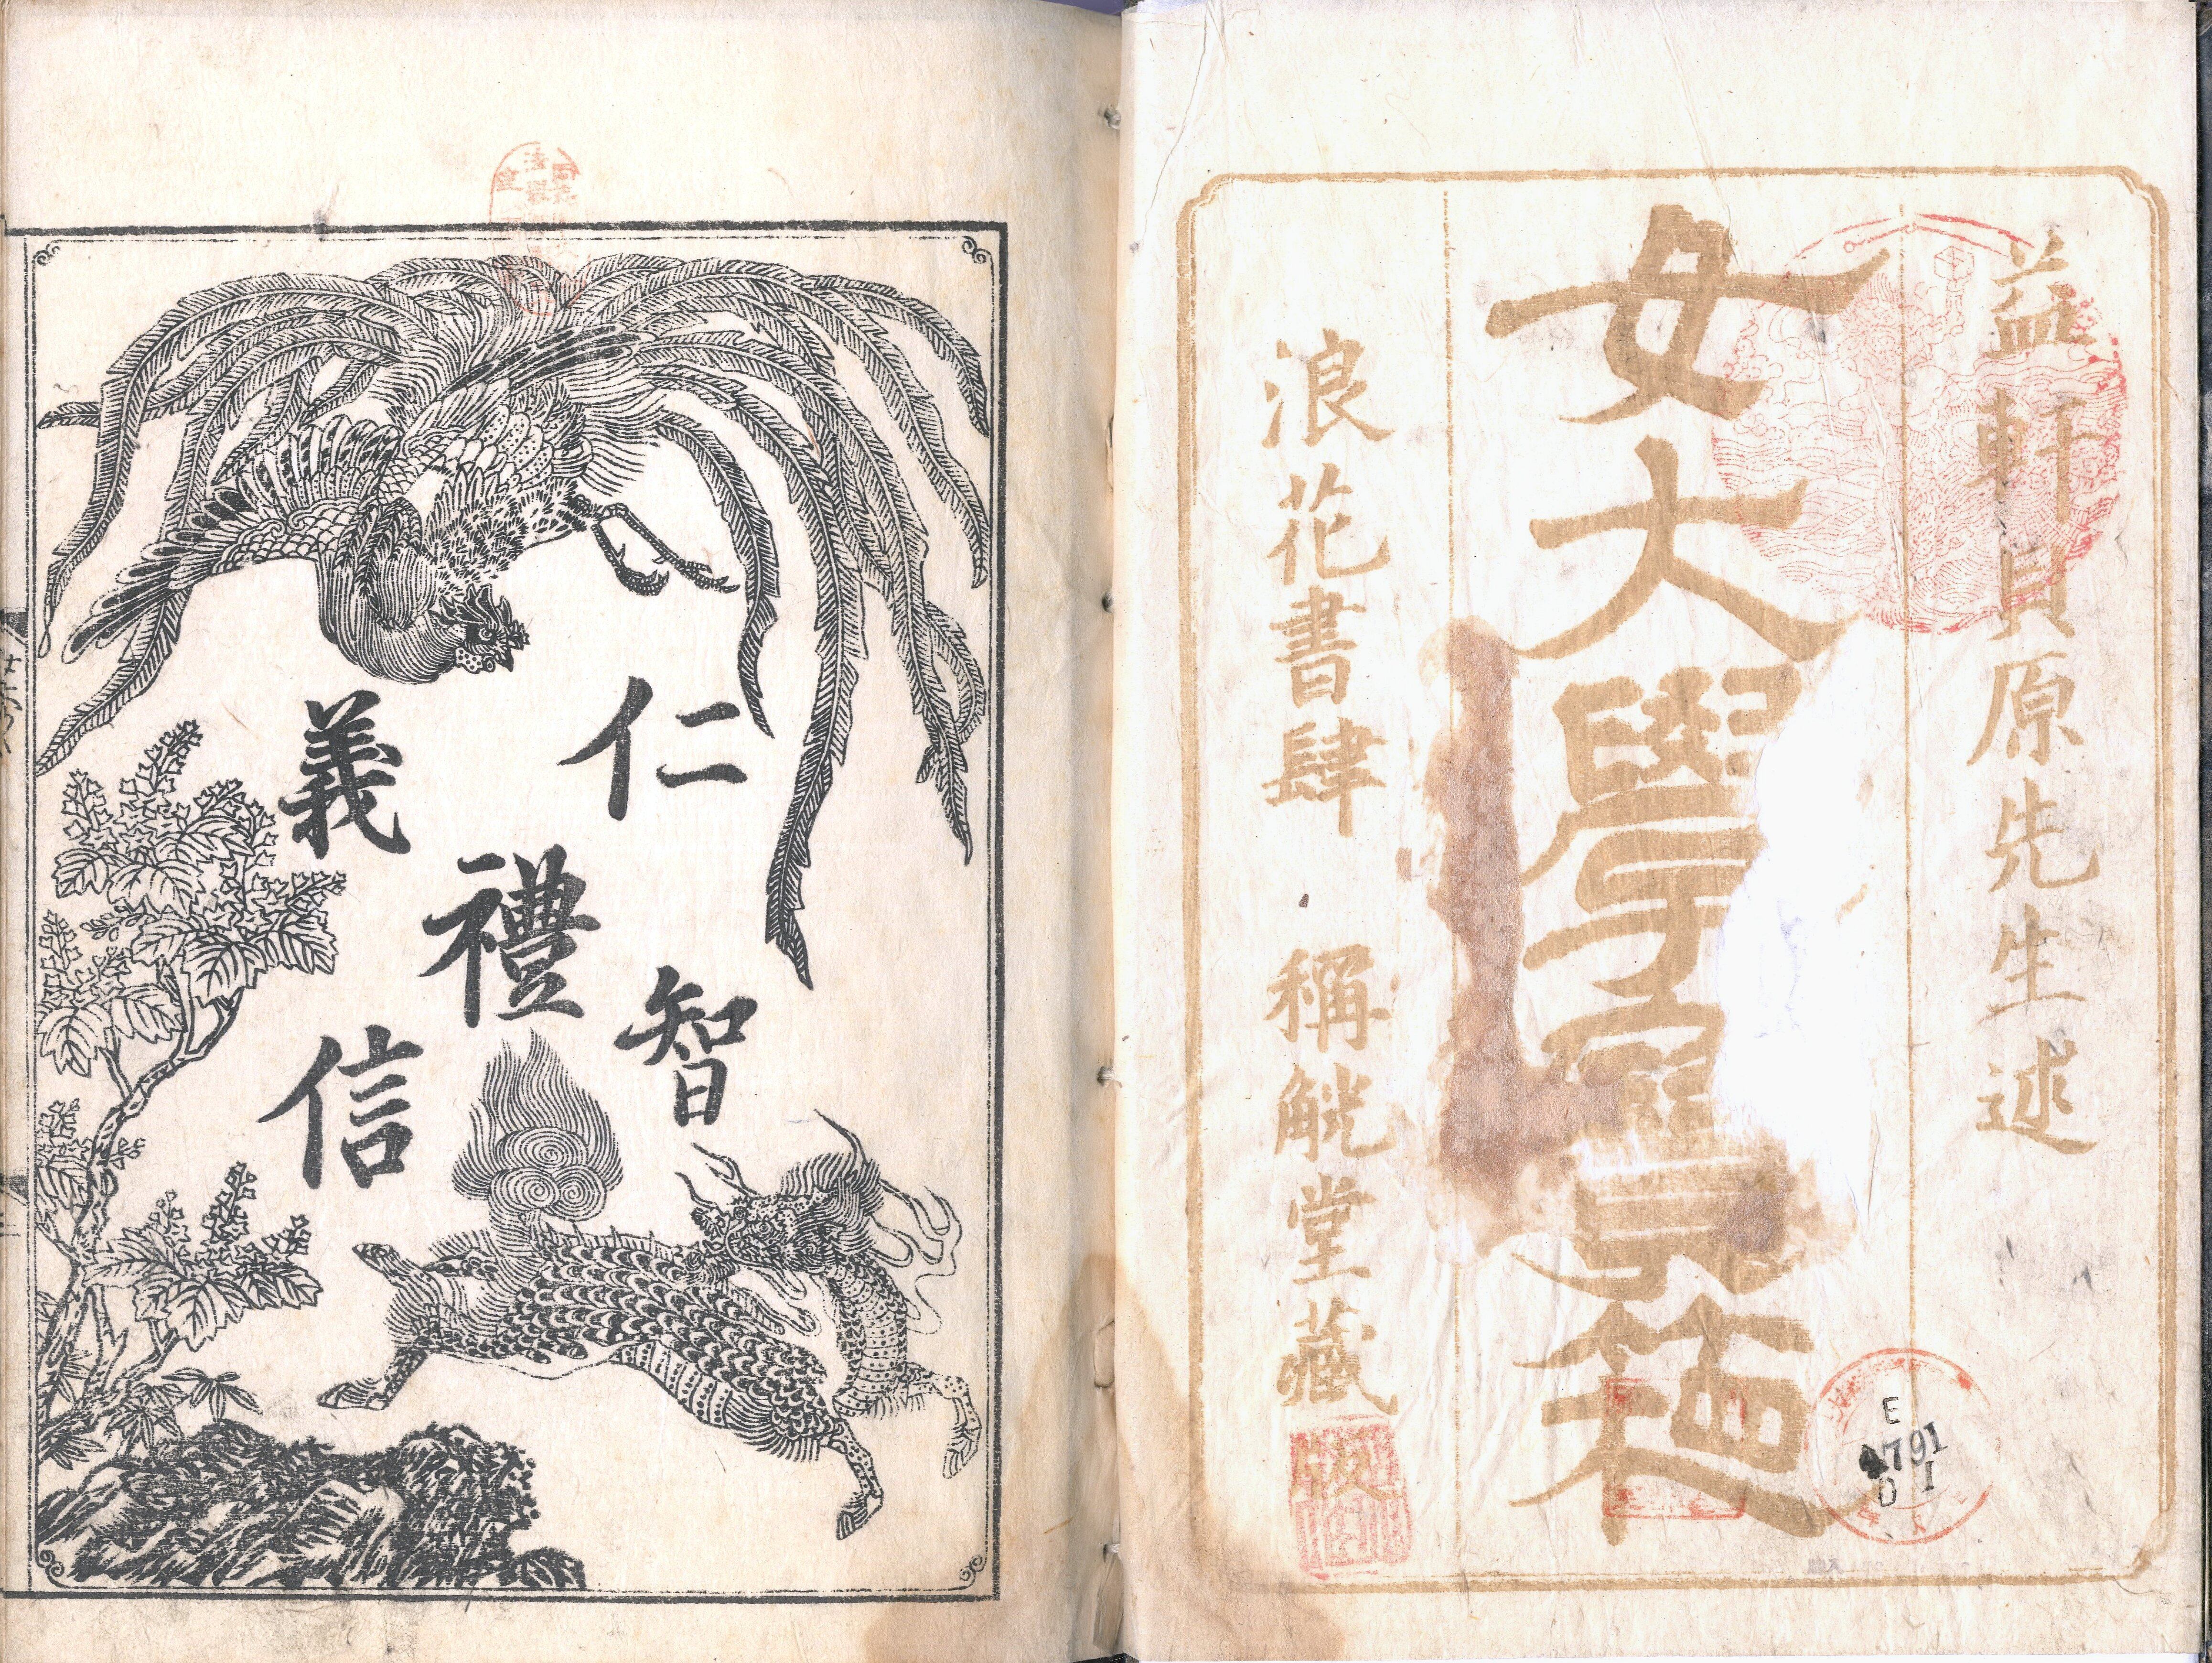 益軒貝原先生述
女大學寶箱
浪花書肆 稱觥堂藏
仁
義
禮
智
信
E
791
D I